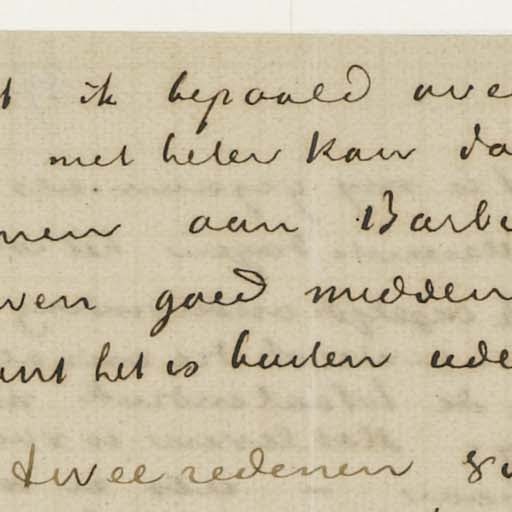 t ik bepaald ove
met beter kan da
nen aan Barbi
ven goed midden
unt het is buiten ede
twee redenen